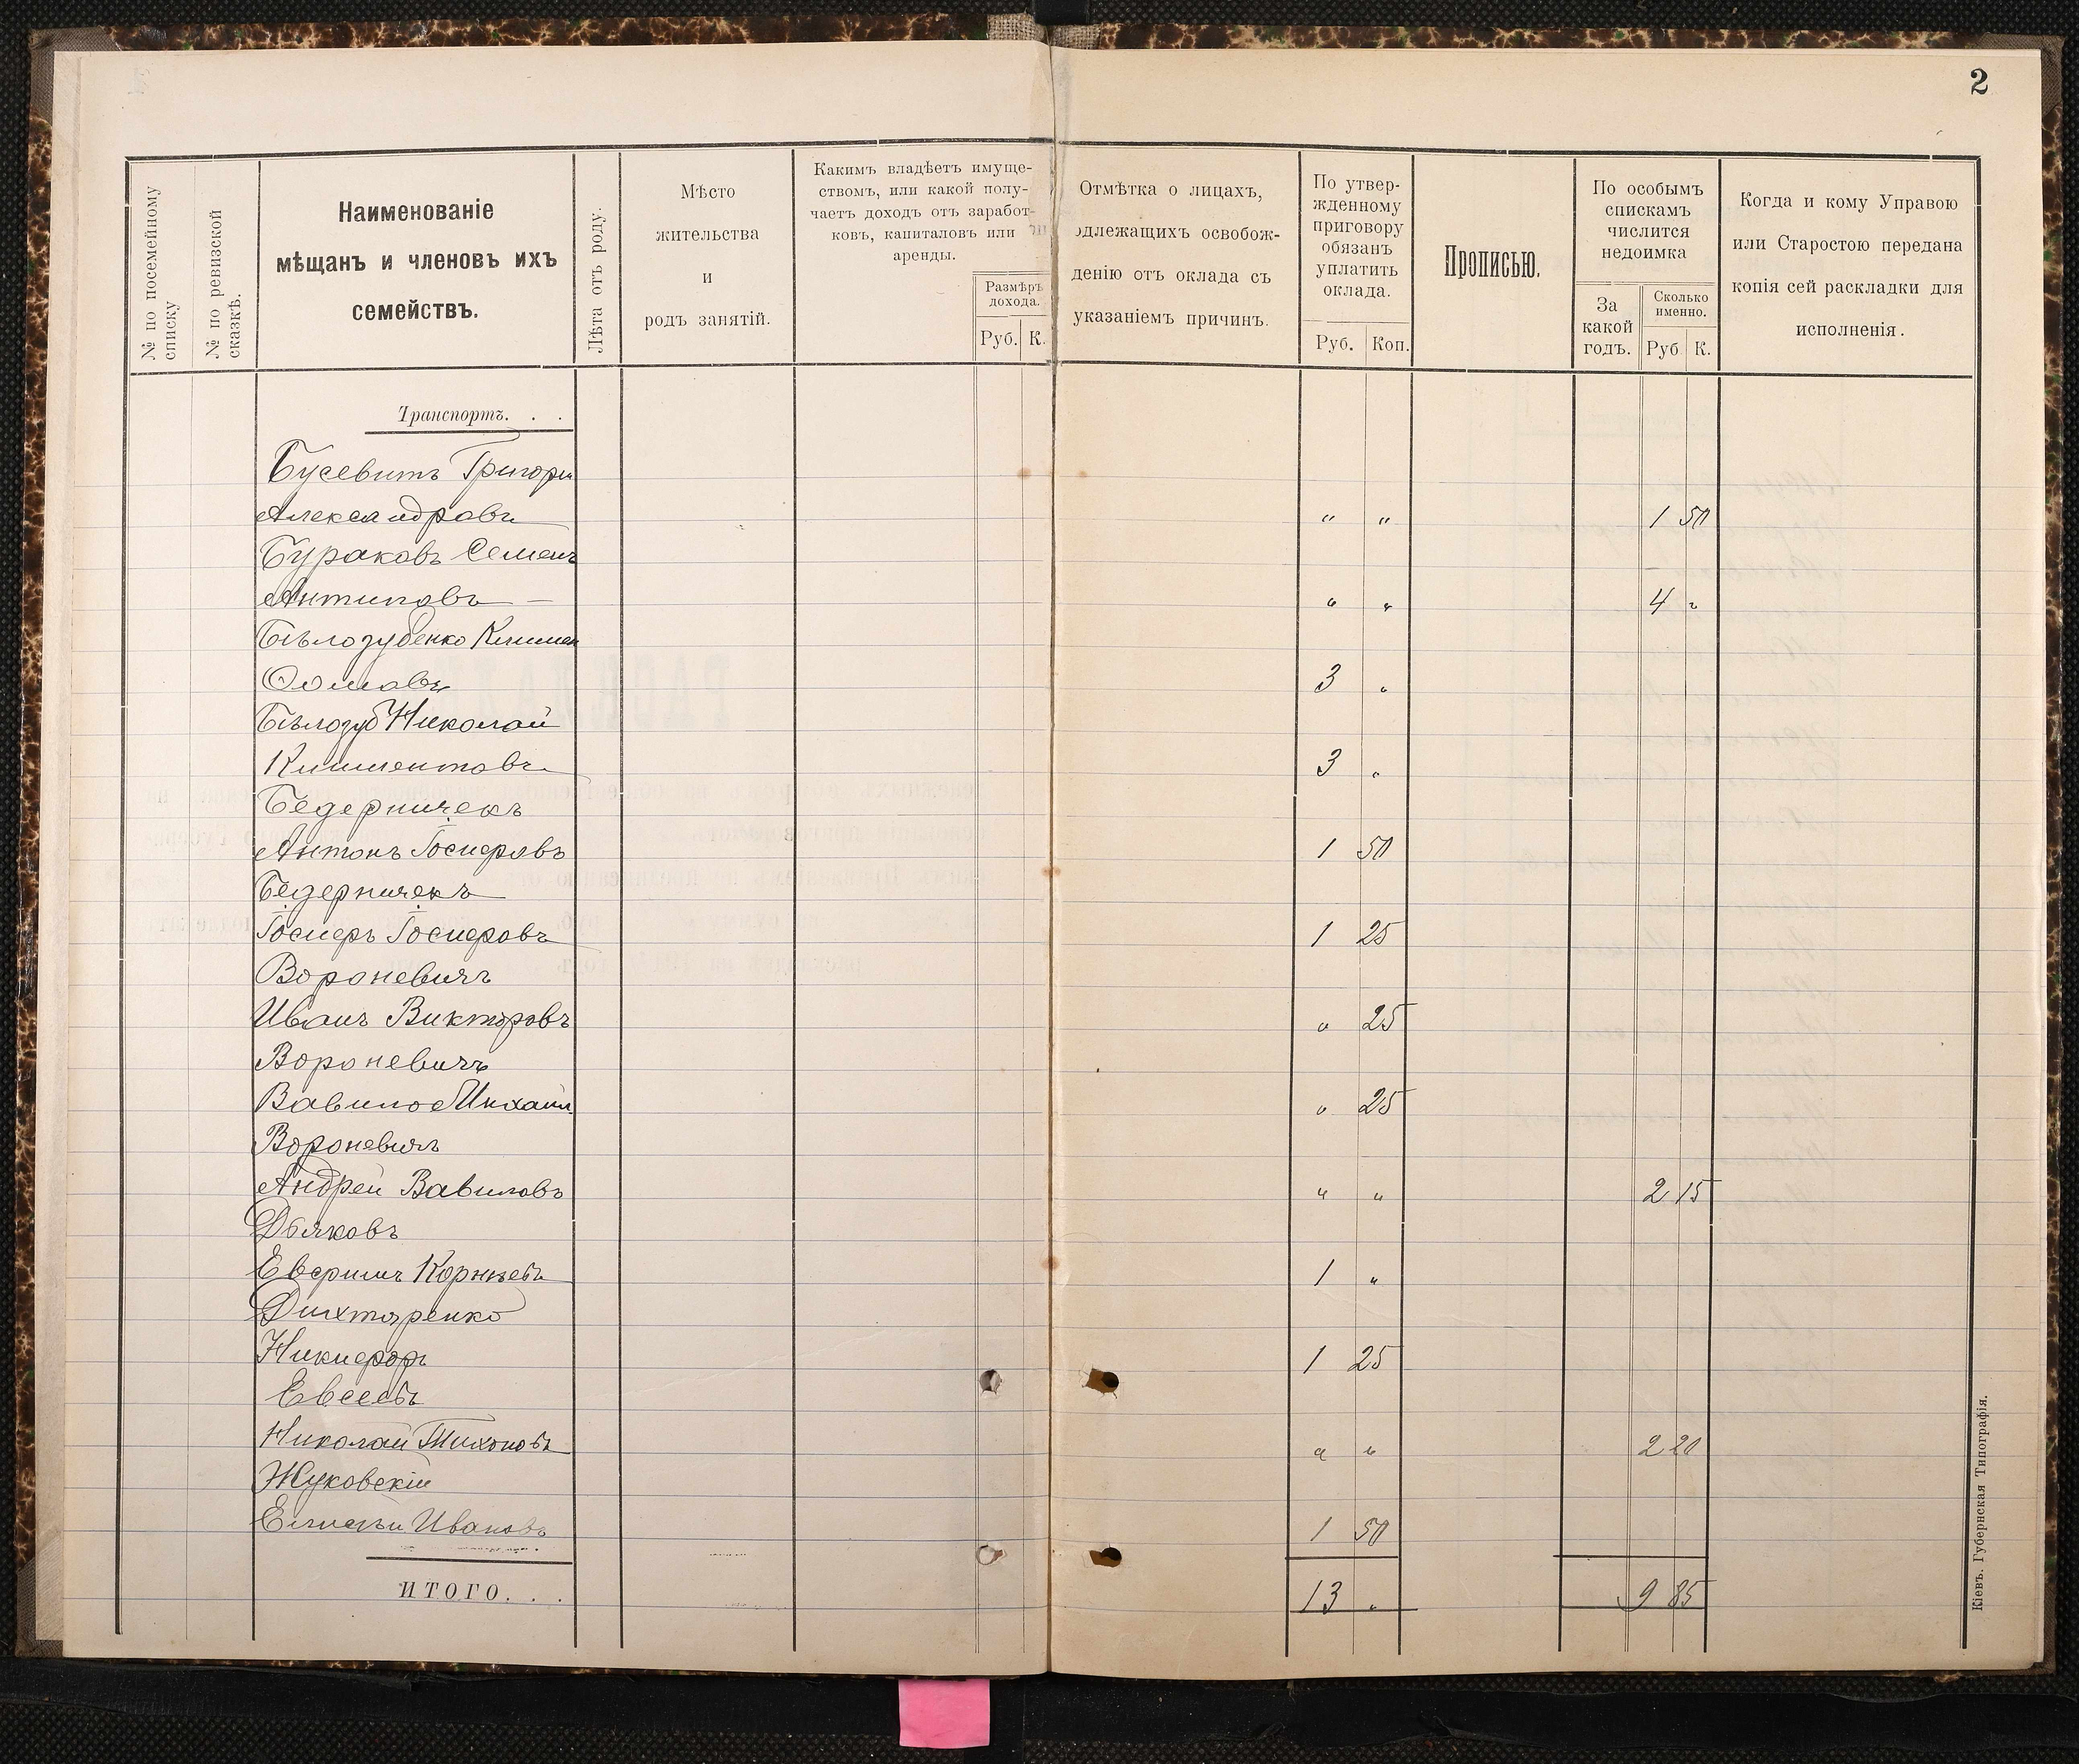 2
№ по посемейному
списку
№ по ревизской
сказкѣ.
Наименованіе
мѣщанъ и членовъ ихъ
семействъ.
Лѣта отъ роду.
Мѣсто
жительства
и
родъ занятій.
Какимъ владѣетъ имуще-
ствомъ, или какой полу-
чаетъ доходъ отъ заработ-
ковъ, капиталовъ или
аренды.
Размѣръ
дохода.
Руб. К.
Отмѣтка о лицахъ,
одлежащихъ освобож-
денію отъ оклада съ
указаніемъ причинъ.
По утвер-
жденному
приговору
обязанъ
уплатить
оклада.
Руб. Коп.
Прописью.
По особымъ
спискамъ
числится
недоимка
За
какой
годъ.
Сколько
именно.
Руб К.
Когда и кому Управою
или Старостою передана
копія сей раскладки для
исполненія.
Транспортъ. . .
Григори
Александровъ " " 1 50
Бураковъ Семенъ
Антиповъ — " " 4 "
Бѣлозубенко Климен
3 "
Бѣлозуб Николай
Климентовъ 3 "
Бедерничекъ
Антонъ Іосифовъ 1 50
Бедерничекъ
Іосифъ Іосифовъ 1 25
Вороневичъ
Иванъ Викторовъ " 25
Вороневичъ
Вавило Михаил " 25
Вороневичъ
Андрей Вавиловъ " " 2 15
Дьяковъ
Корнѣевъ 1 "
Дихтяренко
Никифоръ 1 25
Евсеевъ
Николай Тихоновъ " " 2 20
Жуковскій
Елисѣй Ивановъ 1 50
ИТОГО. . . 13 " 9 85
Кіевъ. Губернская Типографія.